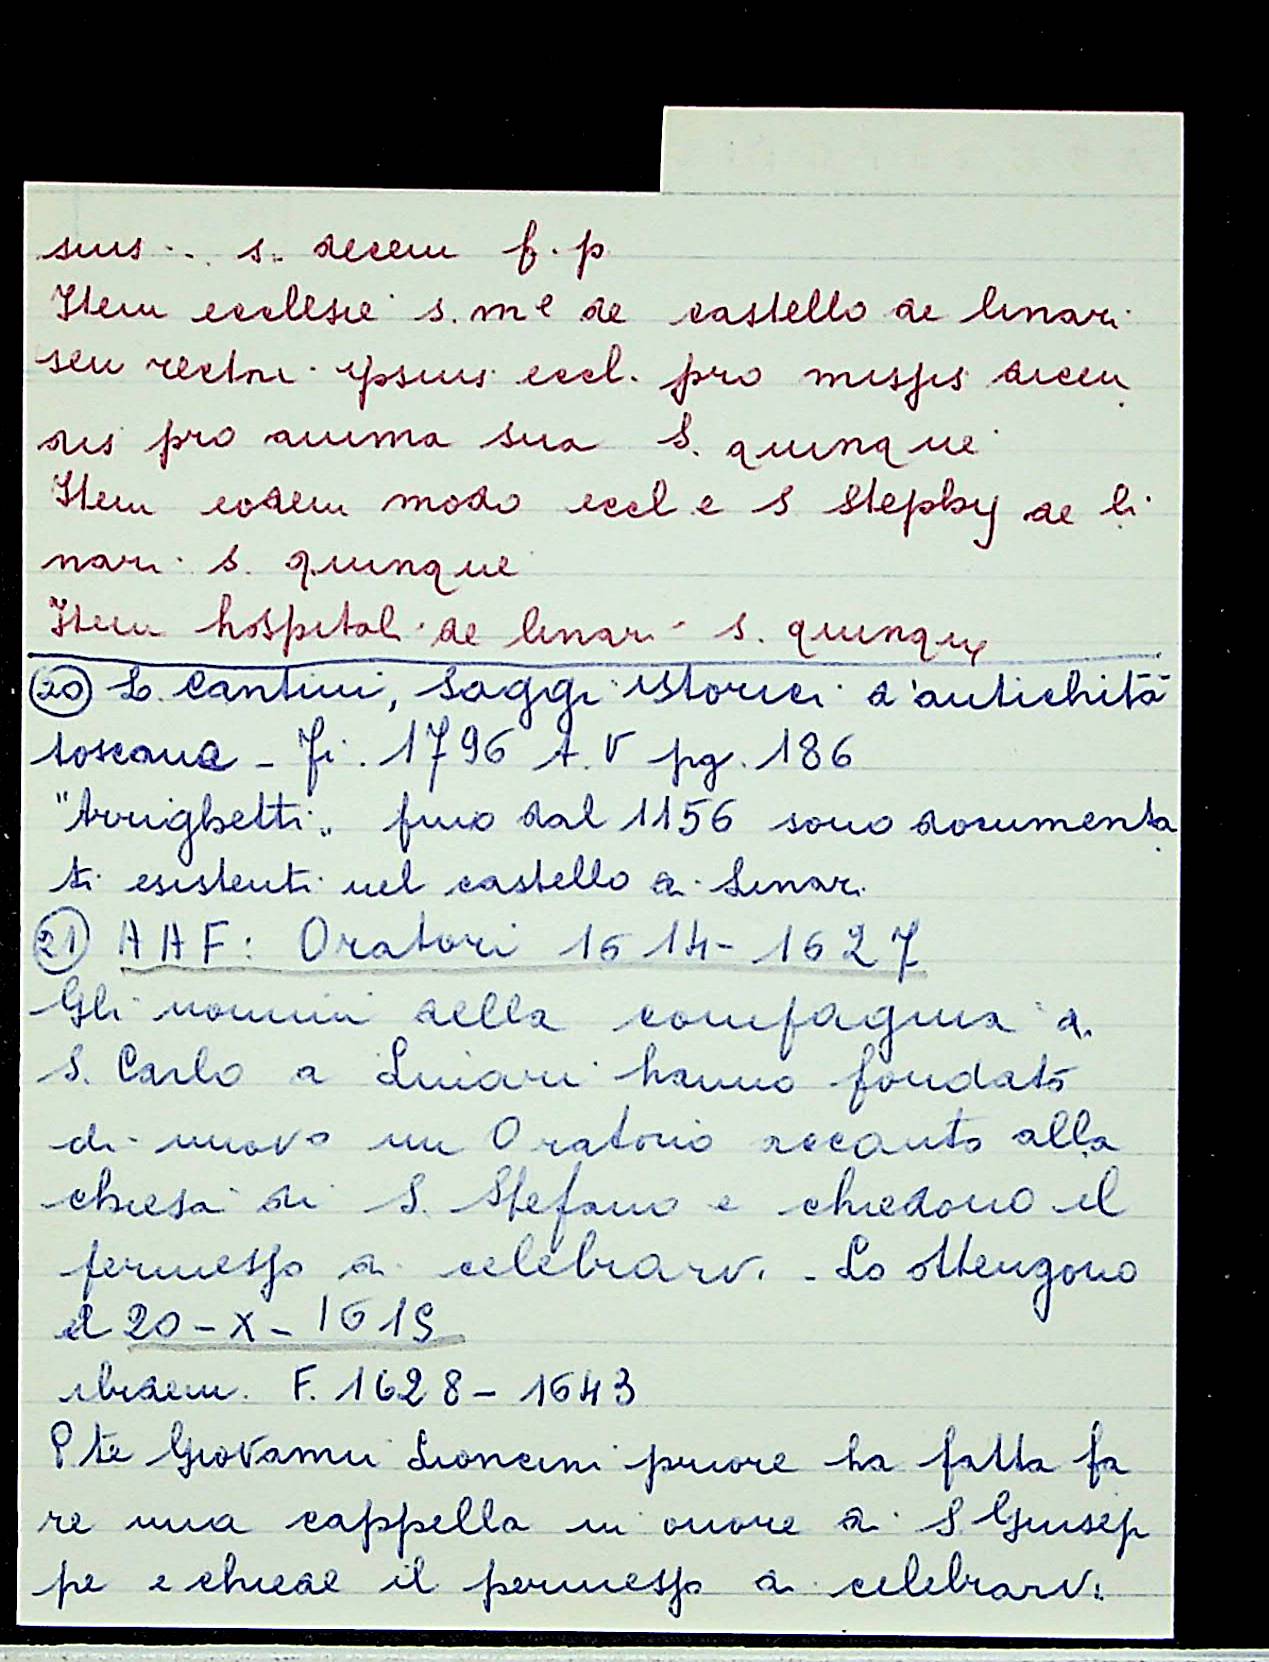 suis .. s. decem f. p
Item ecclesie s. me de castello de linari
seu rectori ipsius eccl. pro missis dicen
dis pro anima sua S. quinque
Item eodem modo eccl e S Stephy de li
nari s. quinque
Item hospitali de linari s. quinque
(20) L. Cantini, Saggi istorici d'antichità
toscane - Fi. 1796 t. V pg. 186
"Arrighetti" fino dal 1156 sono documenta
ti esistenti nel castello di Linari
(21) AAF: Oratori 1614-1627
Gli uomini della compagnia di
S. Carlo a Linari hanno fondato
di nuovo un Oratorio accanto alla
chiesa di S. Stefano e chiedono il
permesso di celebrarvi. - Lo ottengono
il 20-X-1619
ibidem. F. 1628-1643
Pte Giovanni Lioncini priore ha fatta fa
re una cappella in onore di S Giusep
pe e chiede il permesso di celebrarvi